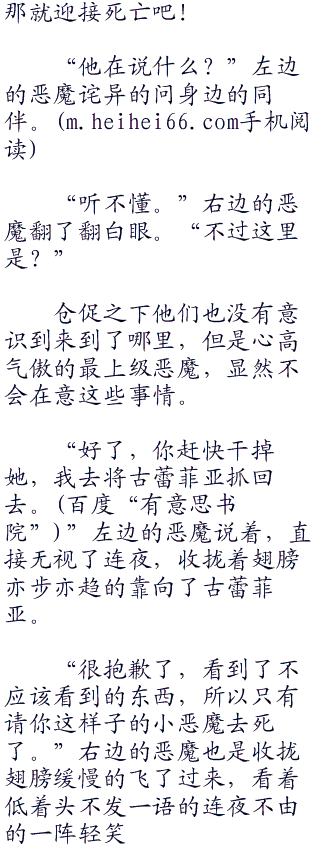 那就迎接死亡吧！
“他在说什么？”左边
的恶魔诧异的问身边的同
伴。(m.heihei66.com手机阅
读)
“听不懂。”右边的恶
魔翻了翻白眼。“不过这里
是？”
仓促之下他们也没有意
识到来到了哪里，但是心高
气傲的最上级恶魔，显然不
会在意这些事情。
“好了，你赶快干掉
她，我去将古蕾菲亚抓回
去。(百度“有意思书
院”)”左边的恶魔说着，直
接无视了连夜，收拢着翅膀
亦步亦趋的靠向了古蕾菲
亚。
“很抱歉了，看到了不
应该看到的东西，所以只有
请你这样子的小恶魔去死
了。”右边的恶魔也是收拢
翅膀缓慢的飞了过来，看着
低着头不发一语的连夜不由
的一阵轻笑